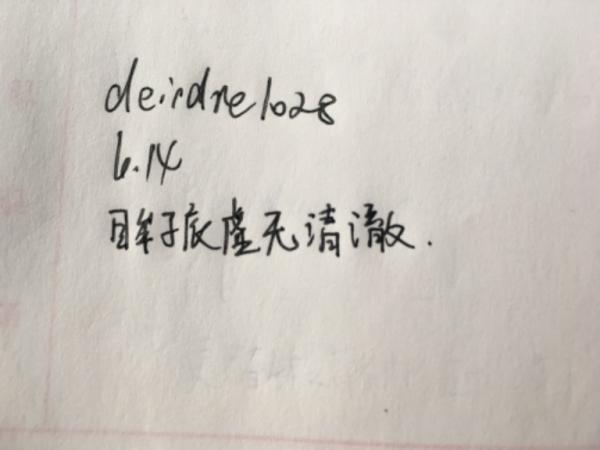 deirdre1028
6.14
眸子底尽无清澈.